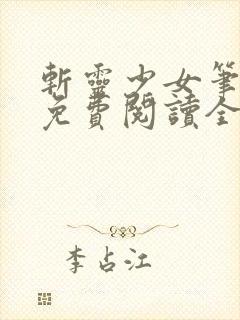 斬靈少女筆
免費閱讀全
李占江